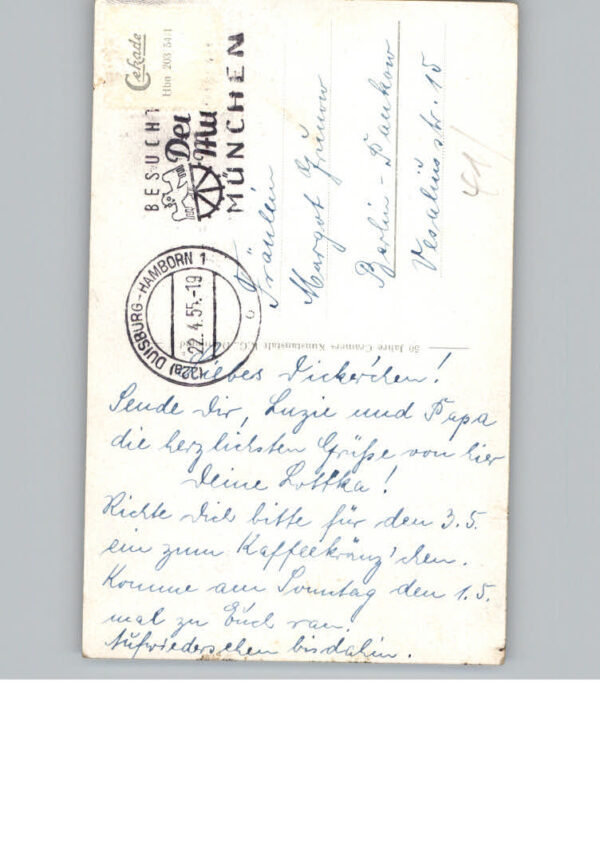 Liebes Dickerchen!
Sende Dir, Luzie und Papa
die herzlichsten Grüße von hier
Deine Lottka!
Richte Dich bitte für den 3.5.
ein zum Kaffeekränz'chen.
Komme am Sonntag den 1.5.
mal zu Euch ran.
Aufwiedersehen bis dahin.
Fräulein
Margot Grunow
Berlin-Pankow
Vesaliusstr. 15
41/
Cekade
Hbn 203 54/1
BESUCHT
MÜNCHEN
(22a) DUISBURG-HAMBORN 1
22.4.55.-19
50 Jahre Cramers Kunstanstalt K.G., D